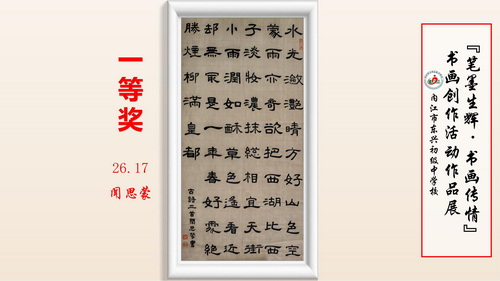 『笔墨生辉·书画传情』
书画创作活动作品展
内江市东兴初级中学校
水光瀲灩晴方好山色空
蒙雨亦奇欲把西湖比西
子淡妝濃抹總相宜天街
小雨潤如酥草色遙看近
却無最是一年春好處絕
勝煙柳滿皇都
古詩二首聞思蒙書
一等奖
26.17
闻思蒙